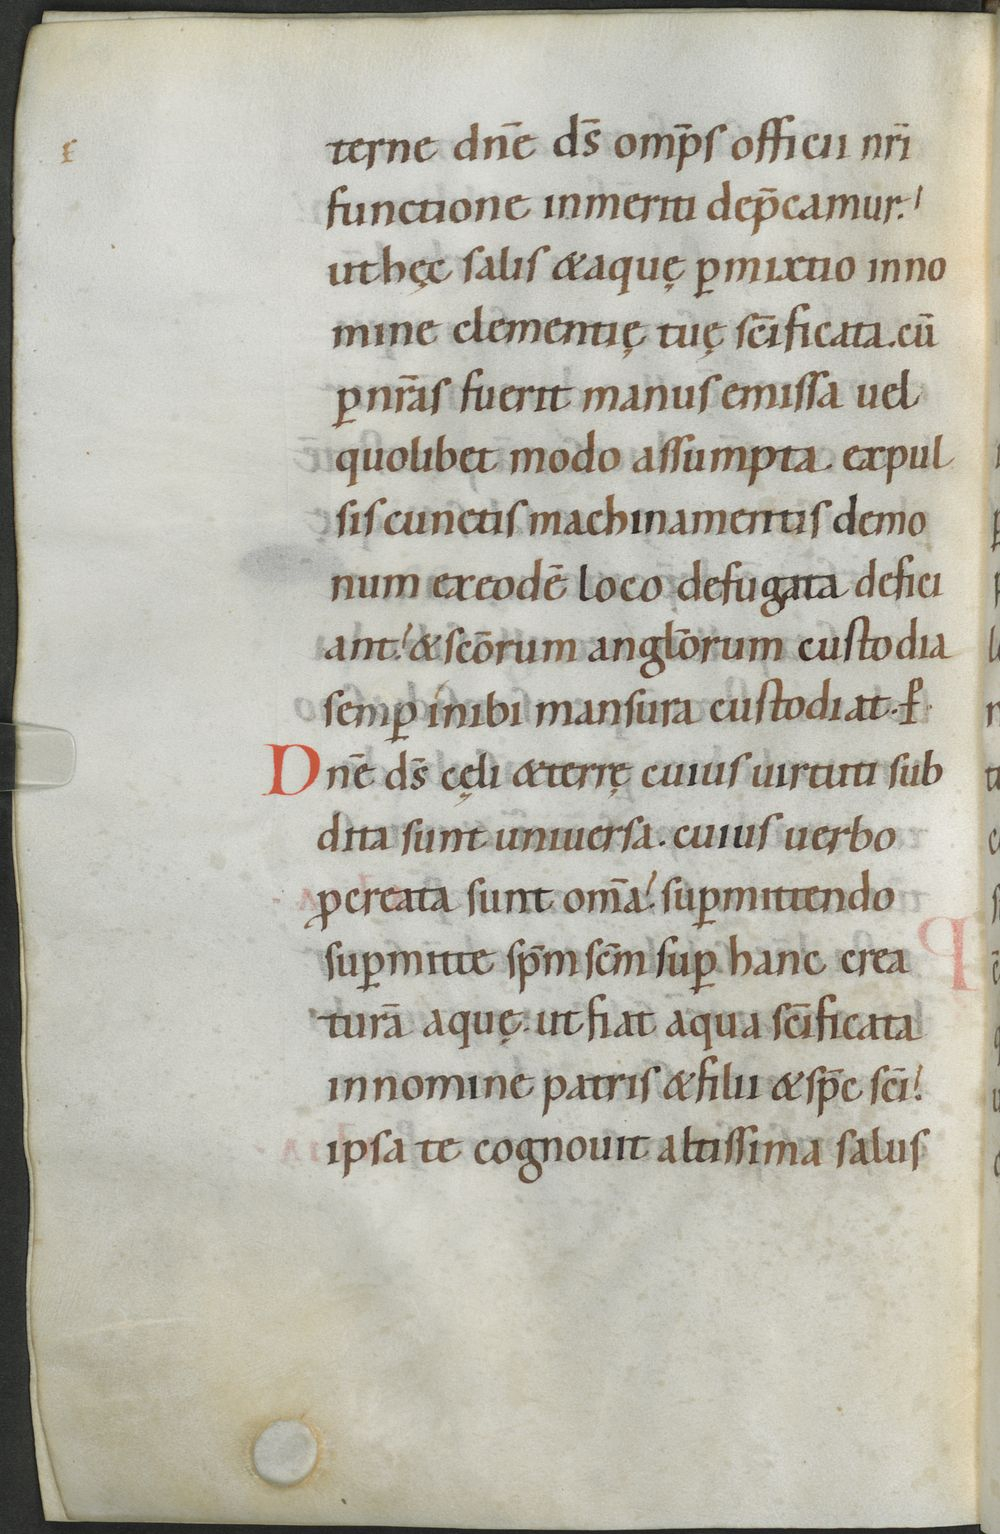 terne dn̄e ds̄ omp̄s officii nr̄i
functione inmeriti dep̄camur.
ut hęc salis & aquę ꝑmixtio inno
mine clementię tuę sc̄ificata. cū
ꝑ nr̄as fuerit manus emissa uel
quolibet modo assumpta expul
sis cunctis machinamentis demo
num ex eodē loco defugata defici
ant. & sc̄orum angl̄orum custodia
semꝑ inibi mansura custodiat. ꝑ.
Dn̄e ds̄ cęli & terrę cuius uirtuti sub
dita sunt uniuersa. cuius uerbo
ꝓcreata sunt om̄a. suꝑmittendo
suꝑmitte sp̄m sc̄m suꝑ hanc crea
turā aquę. ut fiat aqua sc̄ificata
in nomine patris & filii & sp̄c sc̄i.
ipsa te cognouit altissima salus